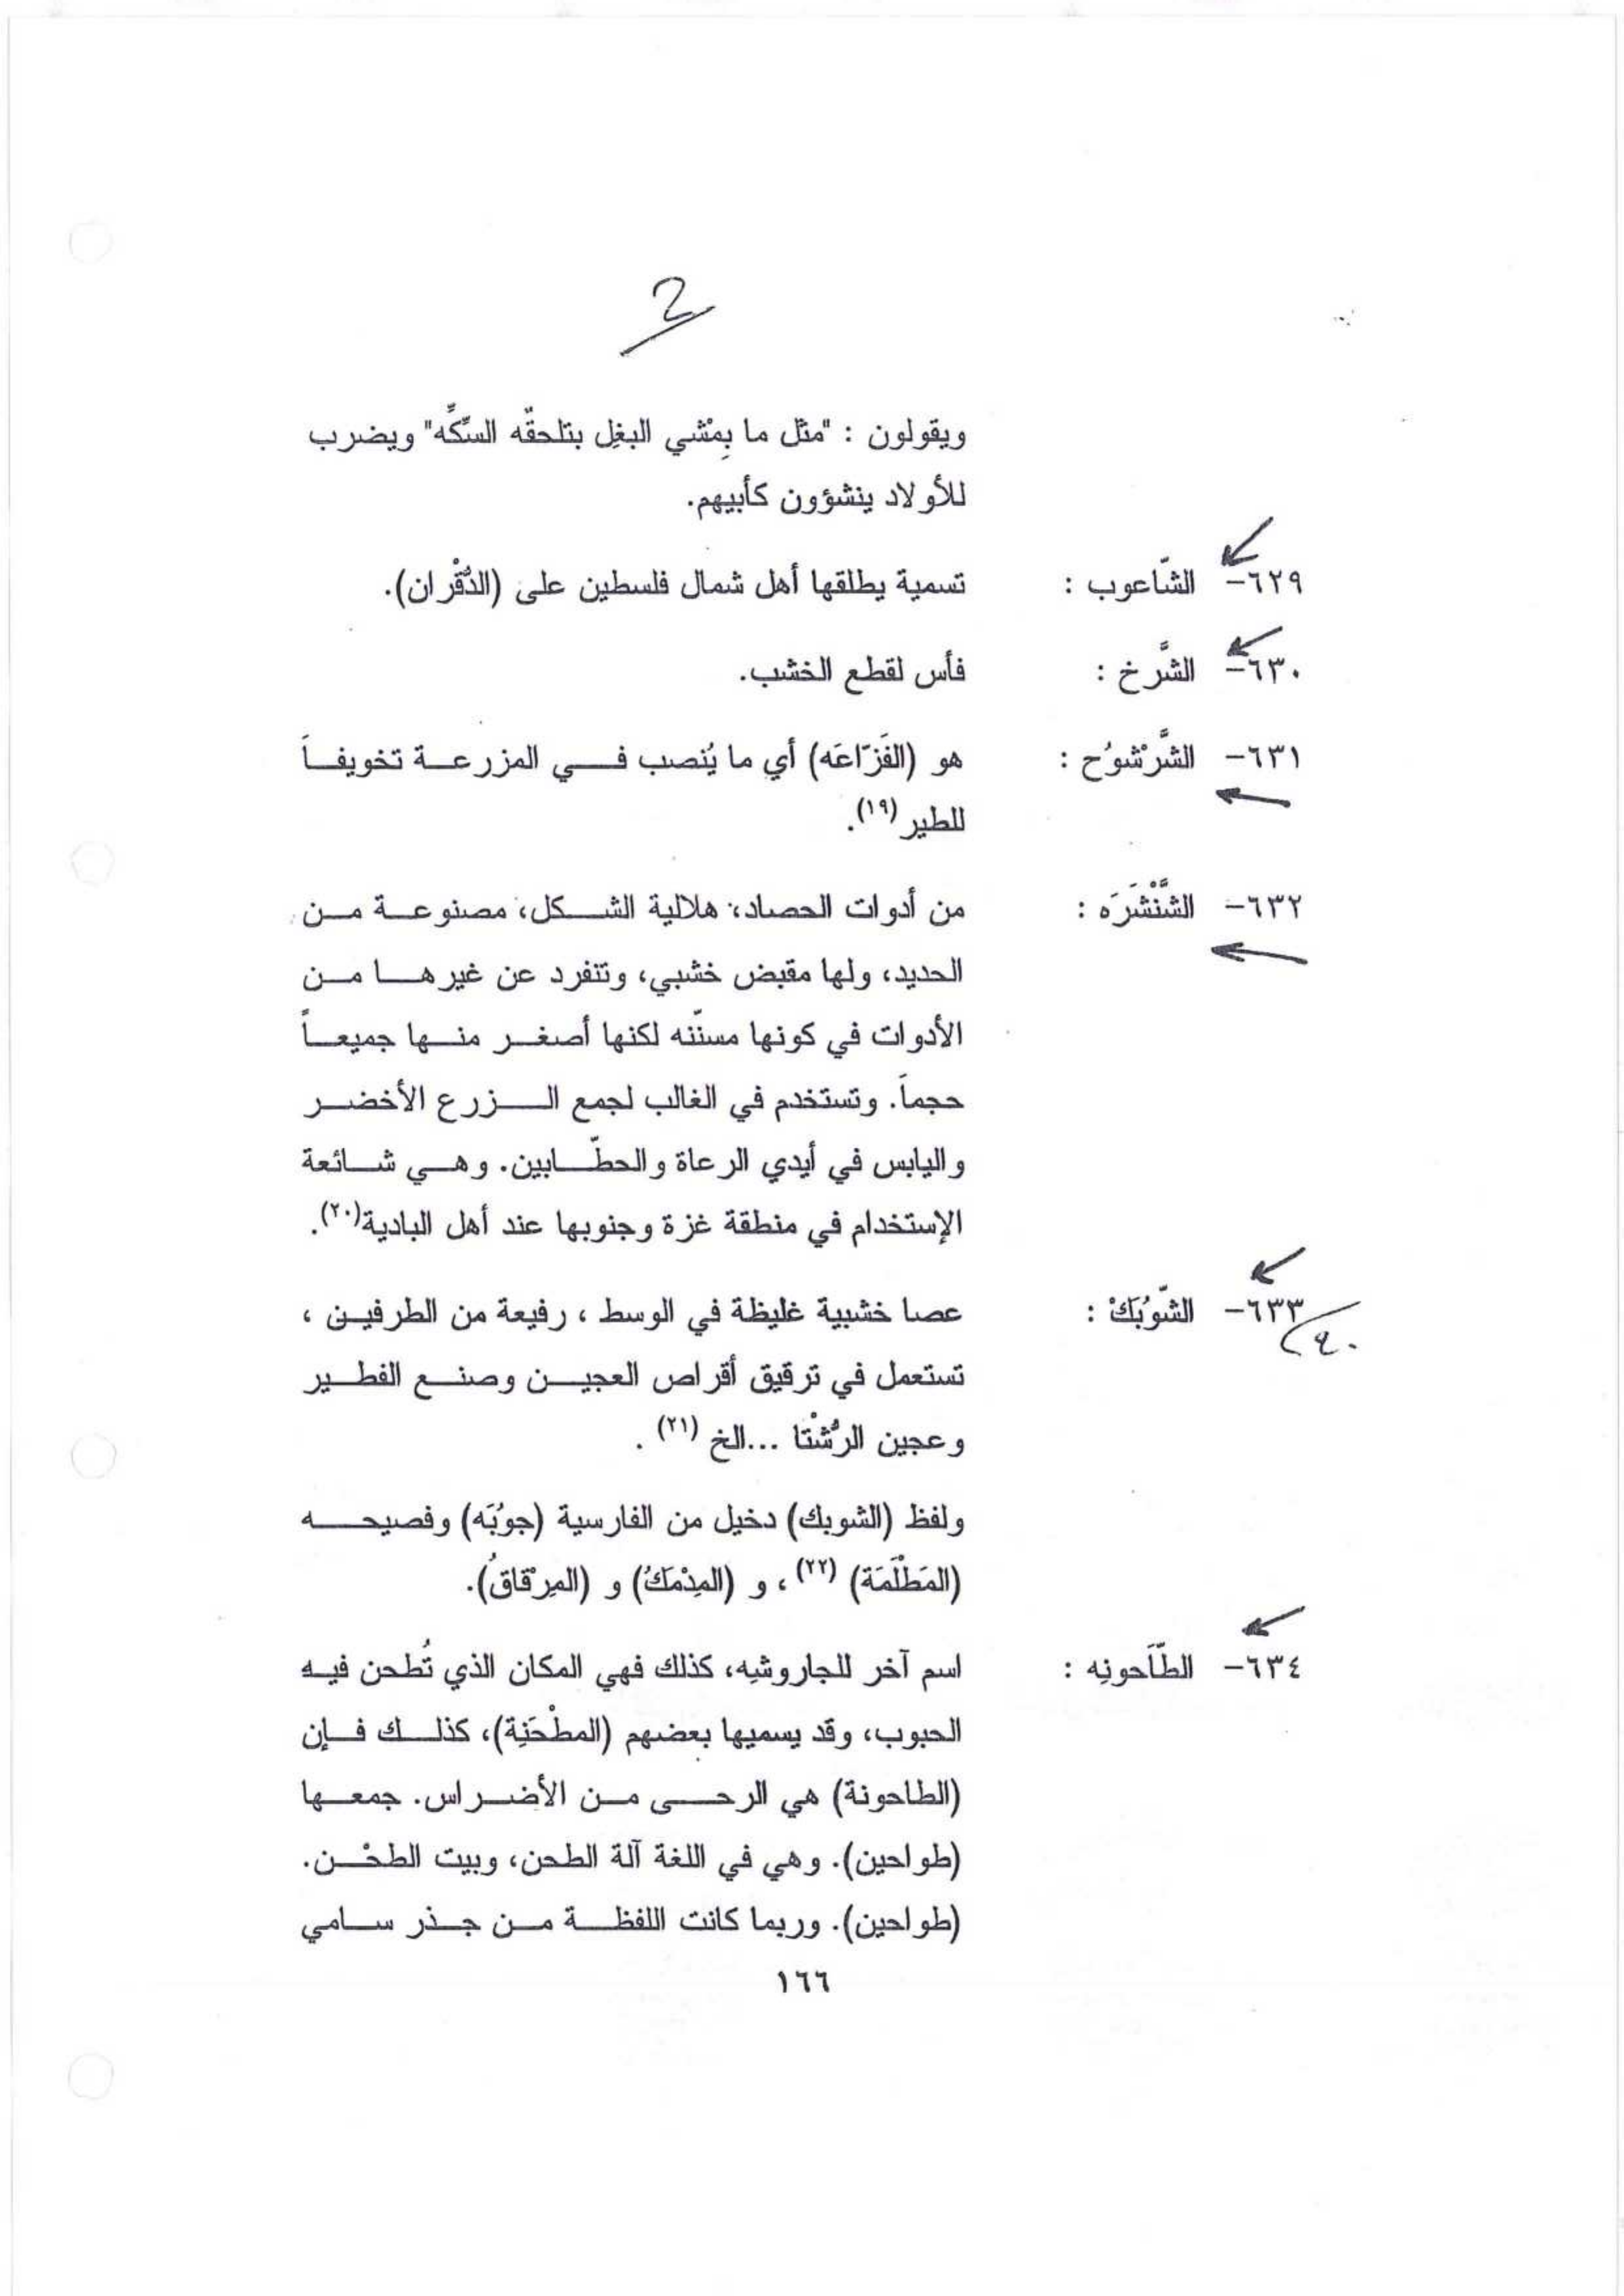 2
ويقولون : "مثل ما بِمْشي البغِل بتلحقّه السِّكِّه" ويضرب
للأولاد ينشؤون كأبيهم.
٦٢٩- الشّاعوب : تسمية يطلقها أهل شمال فلسطين على (الدُّقْران).
٦٣٠- الشَّرخ : فأس لقطع الخشب.
٦٣١- الشَّرْشوُح : هو (الفَزّاعَه) أي ما يُنصب في المزرعة تخويفاَ
للطير (١٩).
٦٣٢- الشَّنْشَرَه : من أدوات الحصاد، هلالية الشكل، مصنوعة من
الحديد، ولها مقبض خشبي، وتنفرد عن غيرها من
الأدوات في كونها مسنّنه لكنها أصغر منها جميعاً
حجماَ. وتستخدم في الغالب لجمع الزرع الأخضر
واليابس في أيدي الرعاة والحطّابين. وهي شائعة
الإستخدام في منطقة غزة وجنوبها عند أهل البادية(٢٠).
٦٣٣- الشّوُبَكْ : عصا خشبية غليظة في الوسط ، رفيعة من الطرفين ،
٤٠
تستعمل في ترقيق أقراص العجين وصنع الفطير
وعجين الرُّشْتا ...الخ (٢١) .
ولفظ (الشوبك) دخيل من الفارسية (جوُبَه) وفصيحه
(المَطْلَمَة) (٢٢) ، و (المِدْمَكُ) و (المِرْقاقُ).
٦٣٤- الطّاَحونِه : اسم آخر للجاروشِه، كذلك فهي المكان الذي تُطحن فيه
الحبوب، وقد يسميها بعضهم (المطْحَنِة)، كذلك فإن
(الطاحونة) هي الرحى من الأضراس. جمعها
(طواحين). وهي في اللغة آلة الطحن، وبيت الطحْن.
(طواحين). وربما كانت اللفظة من جذر سامي
١٦٦